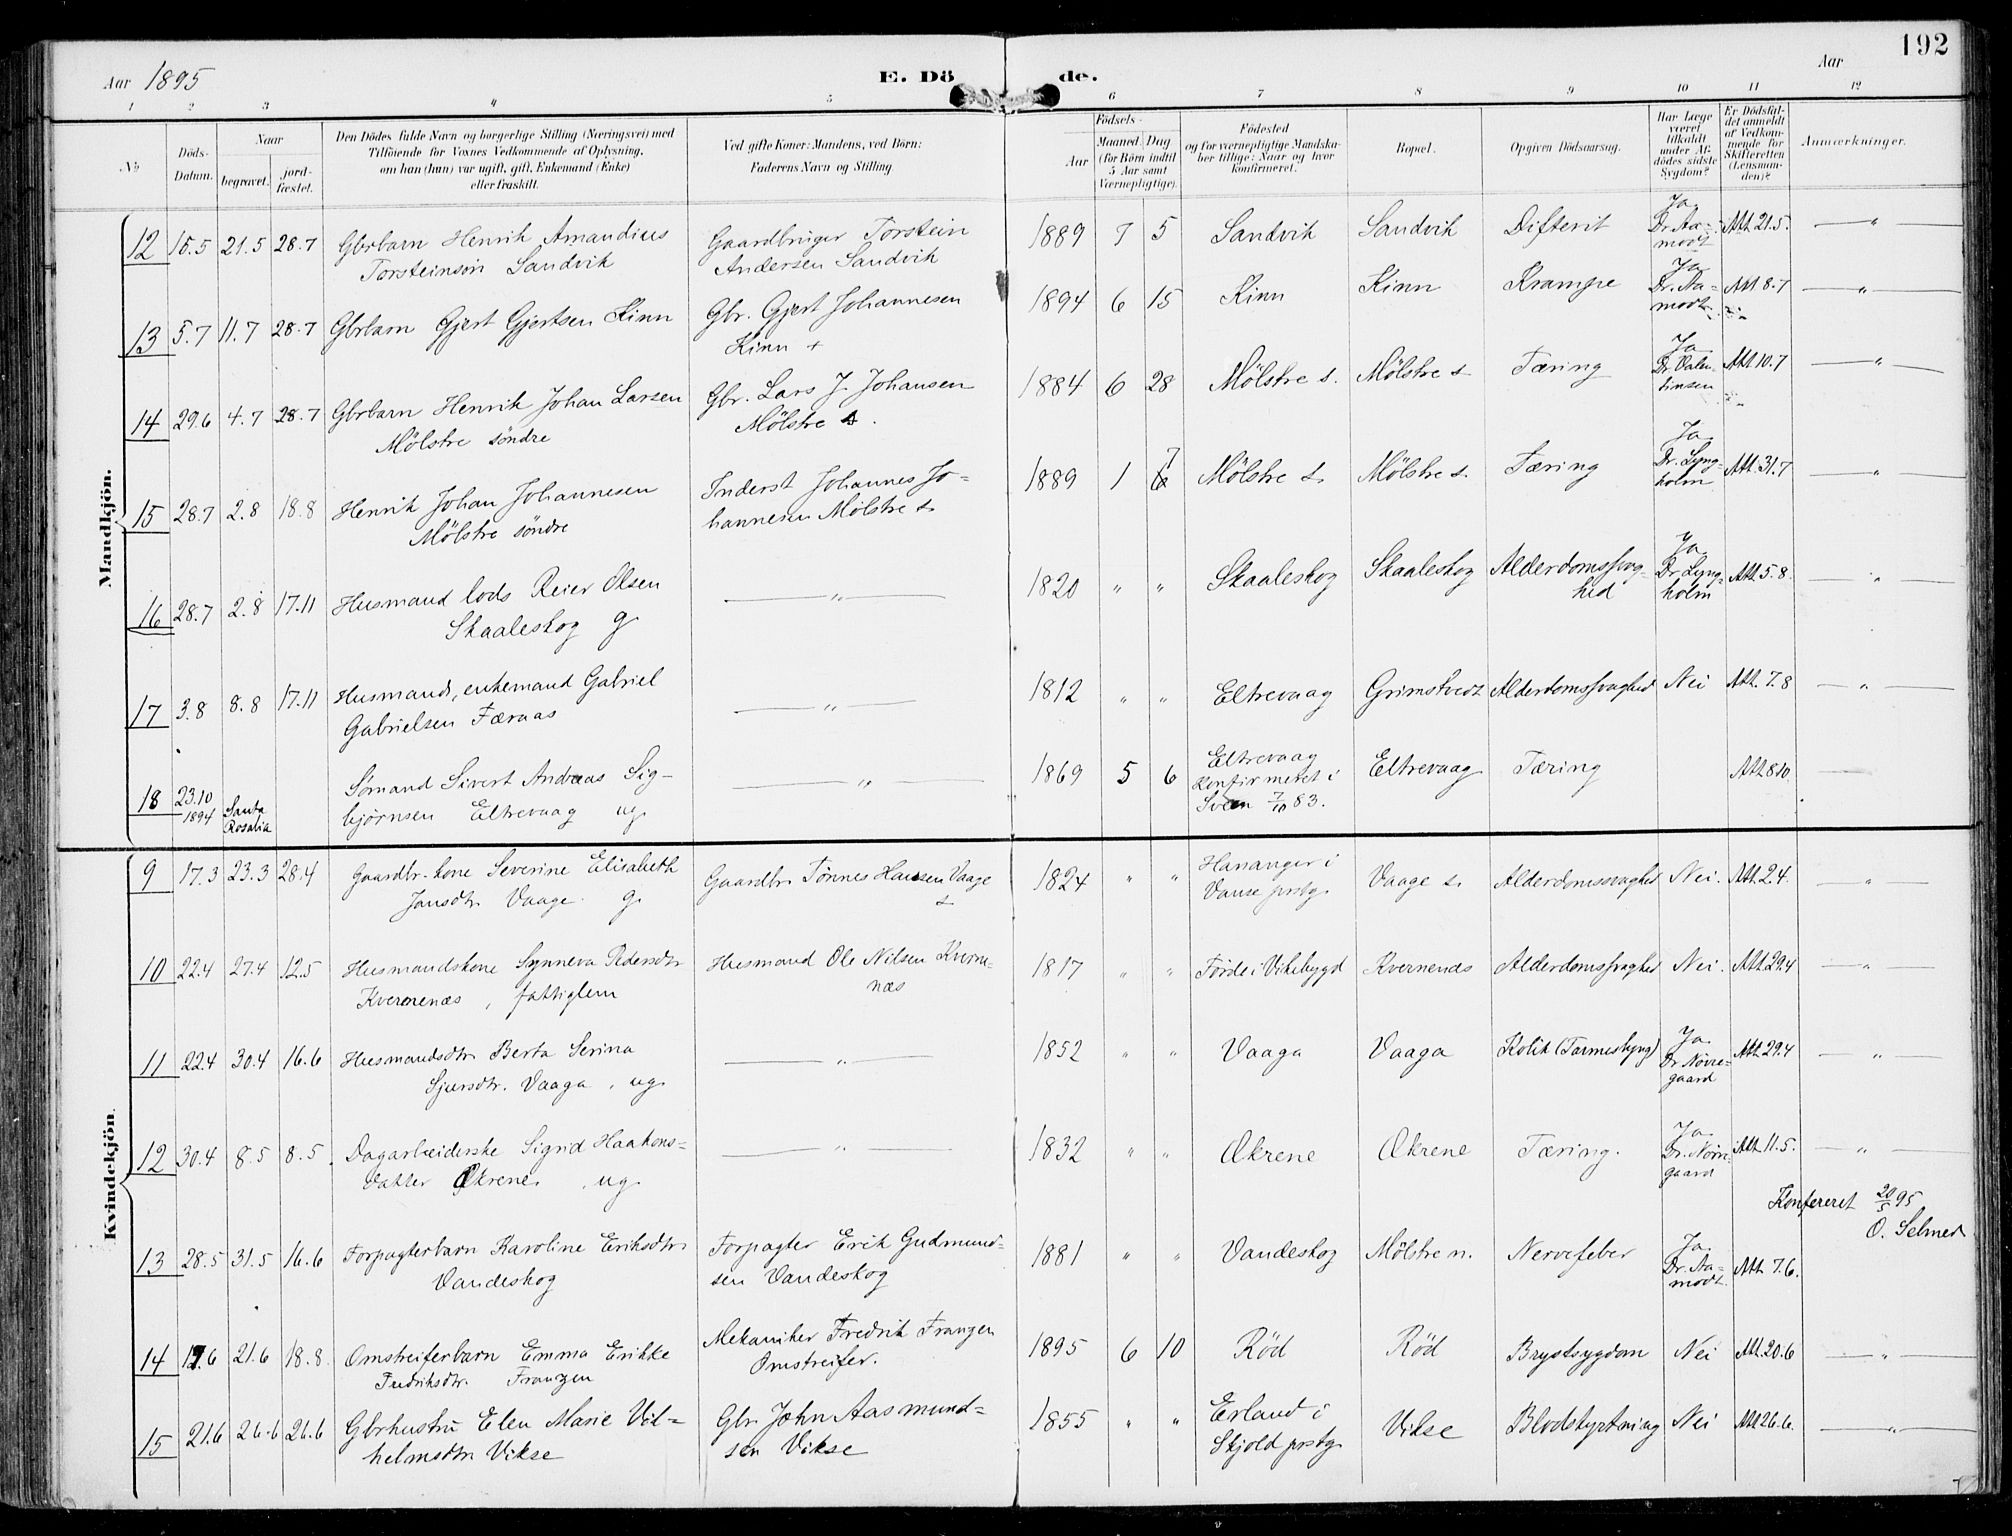 192
Aar 1895
E. Dö de.
Aar
1 2 3 4 5 6 7 8 9 10 11 12
No
Döds-Datum.
Naar
begravet.
jord-fæstet.
Den Dödes fulde Navn og borgerlige Stilling (Næringsvei) med
Tilföiende for Voxnes Vedkommende af Oplysning,
om han (hun) var ugift, gift, Enkemand (Enke)
eller fraskilt.
Ved gifte Koner: Mandens, ved Börn:
Faderens Navn og Stilling.
Födsels-
Aar
Maaned Dag
(for Börn indtil
5 Aar samt
Værnepligtige).
Födested
og for værnepligtige Mandska-
ber tillige: Naar og hvor
konfirmeret.
Bopæl.
Opgiven Dödsaarsag.
Har Læge
været
tilkaldt
under Af-
dödes sidste
Sygdom?
Er Dödsfal-
det anmeldt
af Vedkom-
mende for
Skifteretten
(Lensman-
den)?
Anmærkninger.
Mandkjön.
12 15.5 21.5 28.7 Gbrbarn Henrik Amandius Gaardbruger Torstein 1889 7 5 Sandvik Sandvik Difterit Ja Dr. Aa- Att. 21.5. "
Torsteinson Sandvik Andersen Sandvik modt
13 5.7 11.7 28.7 Gbrbarn Gjert Gjertsen Kinn Gbr. Gjert Johannesen 1894 6 15 Kinn Kinn Krampe Ja Dr. Aa- Att 8.7 "
Kinn + modt
14 29.6 4.7 28.7 Gbrbarn Henrik Johan Larsen Gbr. Lars J. Johansen 1884 6 28 Mölstre s. Mölstre s Tæring Ja Dr. Valen- Att 10.7 "
Mölstre söndre Mölstre s. tinsen
15 28.7 2.8 18.8 Henrik Johan Johannesen Inderst Johannes Jo- 1889 1 7 6 Mölstre s. Mölstre s. Tæring Ja Dr. Lyng- Att. 31.7 "
Mölstre söndre hannesen Mölstre s. holm
16 28.7 2.8 17.11 Husmand lods Reier Olsen " 1820 " " Skaaleskog Skaaleskog Alderdomssvag- Ja Dr. Lyng- Att. 5.8. "
Skaaleskog g. hed holm
17 3.8 8.8 17.11 Husmand, enkemand Gabriel " 1812 " " Eltrevaag Grimstvedt Alderdomssvaghed Nei Att. 7.8 "
Gabrielsen Færaas
18 23.10 1894 Santa Rosalia Sømand Sivert Andreas Sig- " 1869 5 6 Eltrevaag Eltrevaag Tæring Att 8.10.
bjørnsen Eltrevaag ug. Konfirmeret i
Sveen 7/10 83.
Kvindekjön.
9 17.3 23.3 28.4 Gaardbr. kone Severine Elisabeth Gaardbr. Tönnes Hansen Vaage 1824 " " Hananger i Vaage s. Alderdomssvaghed Nei. Att. 2.4. "
Jansdtr Vaage. g. s Vanse prstg.
10 22.4 27.4 12.5 Husmandskone Synneva Pedersdtr Husmand Ole Nilsen Kverne- 1817 " " Førde i Vikebygd Kvernenæs Alderdomssvaghed Nei. Att. 29.4 "
Kvernenæs, fattiglem næs
11 22.4 30.4 16.6 Husmandsdtr Berta Serina " 1852 " " Vaaga Vaaga Kolik (Tarmeslyng) Ja Dr. Nørre- Att. 29.4 "
Sjursdtr. Vaaga, ug. gaard
12 30.4 8.5 8.5. Dagarbeiderske Sigrid Haakons- " 1832 " " Økrene Økrene Tæring. Ja Dr. Nørre- Att. 11.5. "
datter Økrene. ug. gaard
Konfereret 20/5 95
O. Selmer
13 28.5 31.5 16.6 Forpagterbarn Karoline Eriksdtr. Forpagter Erik Gudmund- 1881 " " Vandeskog Mölstre n. Nervefeber Ja Dr. Aa- Att. 7.6.
Vandeskog sen Vandeskog modt.
14 17.6 21.6 18.8. Omstreiferbarn Emma Erikke Mekaniker Fredrik Franzen 1895 6 10 Röd Röd Brystsygdom Nei Att. 20.6 "
Fredriksdtr. Franzen Omstreifer.
15 21.6 26.6 26.6 Gbrhustru Elen Marie Vil- Gbr. John Aasmund- 1855 " " Erland i Vikse Blodstyrtning Nei Att 26.6. "
helmsdtr Vikse sen Vikse Skjold prstg.